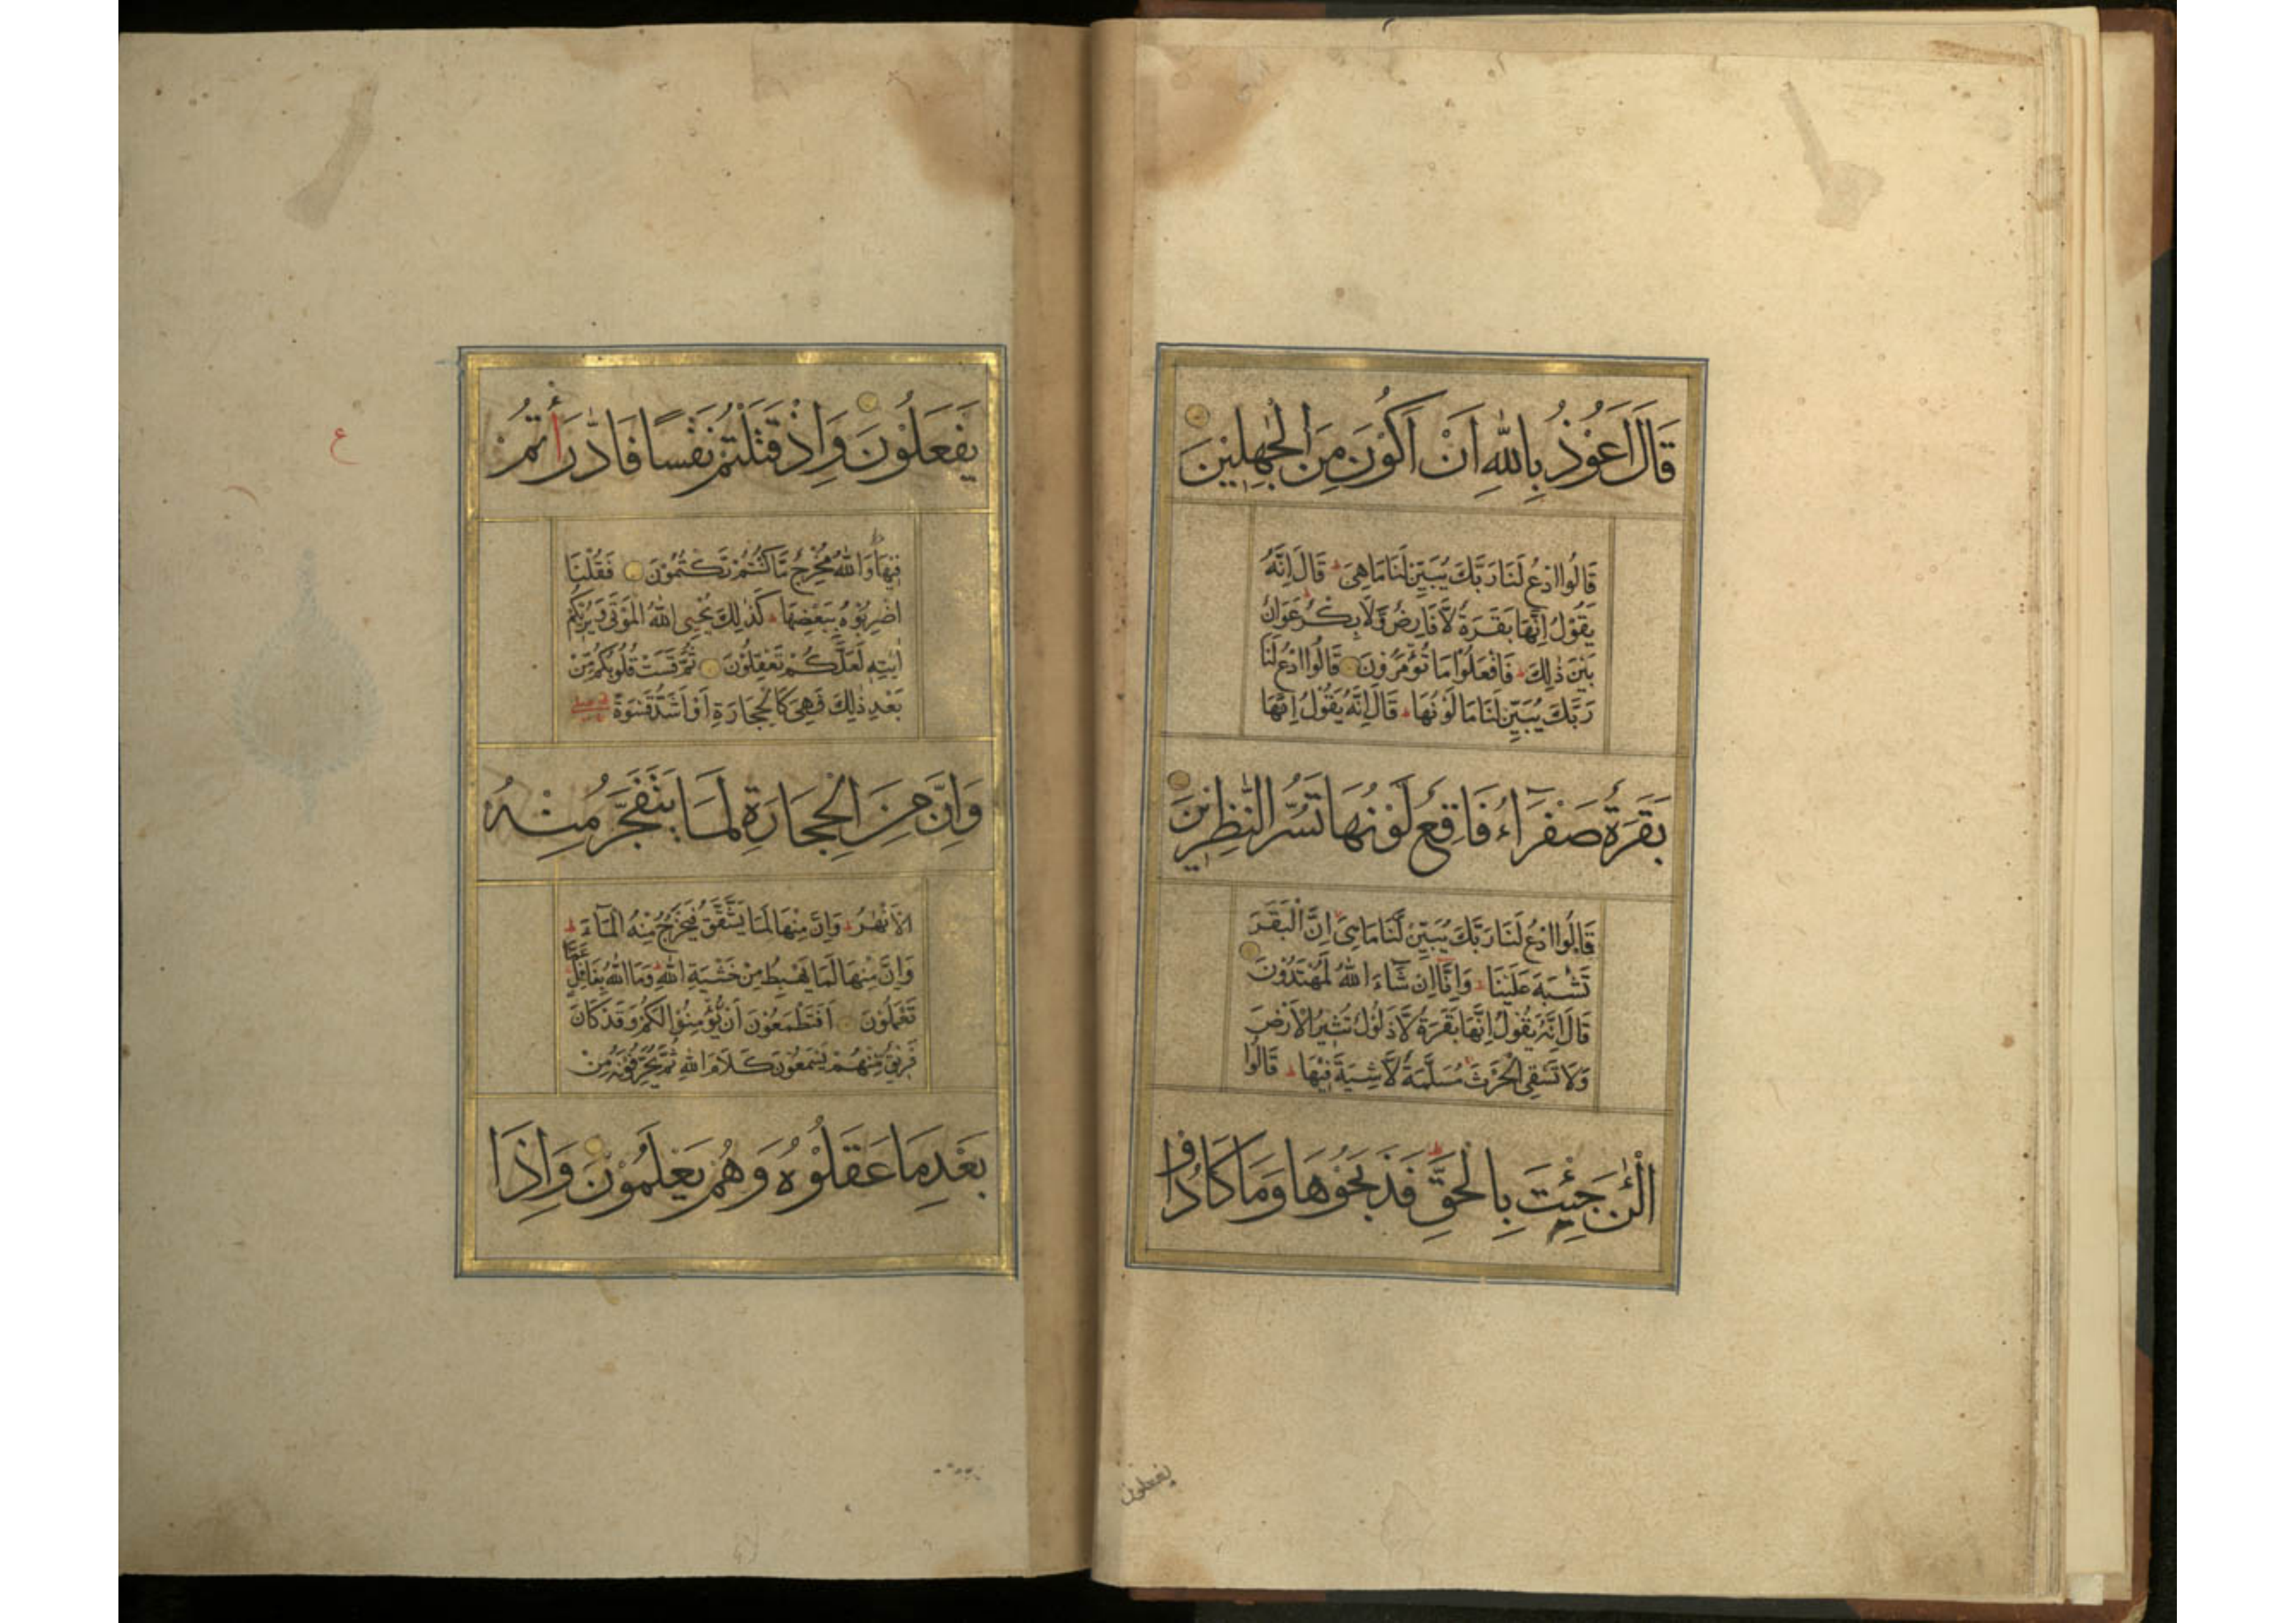 قَالَ اَعُوْذُ بِاللّٰهِ اَنْ اَكُوْنَ مِنَ الْجٰهِلِيْنَ
قَالُوا ادْعُ لَنَا رَبَّكَ يُبَيِّنْ لَنَا مَا هِىَ ط قَالَ اِنَّهُ
يَقُوْلُ اِنَّهَا بَقَرَةٌ لَّا فَارِضٌ وَّلَا بِكْرٌ ط عَوَانٌ
بَيْنَ ذٰلِكَ ط فَافْعَلُوْا مَا تُؤْمَرُوْنَ قَالُوا ادْعُ لَنَا
رَبَّكَ يُبَيِّنْ لَنَا مَا لَوْنُهَا ط قَالَ اِنَّهُ يَقُوْلُ اِنَّهَا
بَقَرَةٌ صَفْرَآءُ فَاقِعٌ لَوْنُهَا تَسُرُّ النّٰظِرِيْنَ
قَالُوا ادْعُ لَنَا رَبَّكَ يُبَيِّنْ لَّنَا مَا هِىَ اِنَّ الْبَقَرَ
تَشٰبَهَ عَلَيْنَا ط وَاِنَّآ اِنْ شَآءَ اللّٰهُ لَمُهْتَدُوْنَ
قَالَ اِنَّهُ يَقُوْلُ اِنَّهَا بَقَرَةٌ لَّا ذَلُوْلٌ تُثِيْرُ الْاَرْضَ
وَلَا تَسْقِى الْحَرْثَ مُسَلَّمَةٌ لَّا شِيَةَ فِيْهَا ط قَالُوا
الْـٰٔنَ جِئْتَ بِالْحَقِّ ط فَذَبَحُوْهَا وَمَا كَادُوْا
يفعلون
يَفْعَلُوْنَ وَاِذْ قَتَلْتُمْ نَفْسًا فَادّٰرَأْتُمْ
ع
فِيْهَا ط وَاللّٰهُ مُخْرِجٌ مَّا كُنْتُمْ تَكْتُمُوْنَ فَقُلْنَا
اضْرِبُوْهُ بِبَعْضِهَا ط كَذٰلِكَ يُحْىِ اللّٰهُ الْمَوْتٰى وَيُرِيْكُمْ
اٰيٰتِهٖ لَعَلَّكُمْ تَعْقِلُوْنَ ثُمَّ قَسَتْ قُلُوْبُكُمْ مِّنْ
بَعْدِ ذٰلِكَ فَهِىَ كَالْحِجَارَةِ اَوْ اَشَدُّ قَسْوَةً
وَاِنَّ مِنَ الْحِجَارَةِ لَمَا يَتَفَجَّرُ مِنْهُ
الْاَنْهٰرُ ط وَاِنَّ مِنْهَا لَمَا يَشَّقَّقُ فَيَخْرُجُ مِنْهُ الْمَآءُ ط
وَاِنَّ مِنْهَا لَمَا يَهْبِطُ مِنْ خَشْيَةِ اللّٰهِ ط وَمَا اللّٰهُ بِغَافِلٍ عَمَّا
تَعْمَلُوْنَ اَفَتَطْمَعُوْنَ اَنْ يُّؤْمِنُوْا لَكُمْ وَقَدْ كَانَ
فَرِيْقٌ مِّنْهُمْ يَسْمَعُوْنَ كَلَامَ اللّٰهِ ثُمَّ يُحَرِّفُوْنَهُ مِنْ
بَعْدِ مَا عَقَلُوْهُ وَهُمْ يَعْلَمُوْنَ وَاِذَا